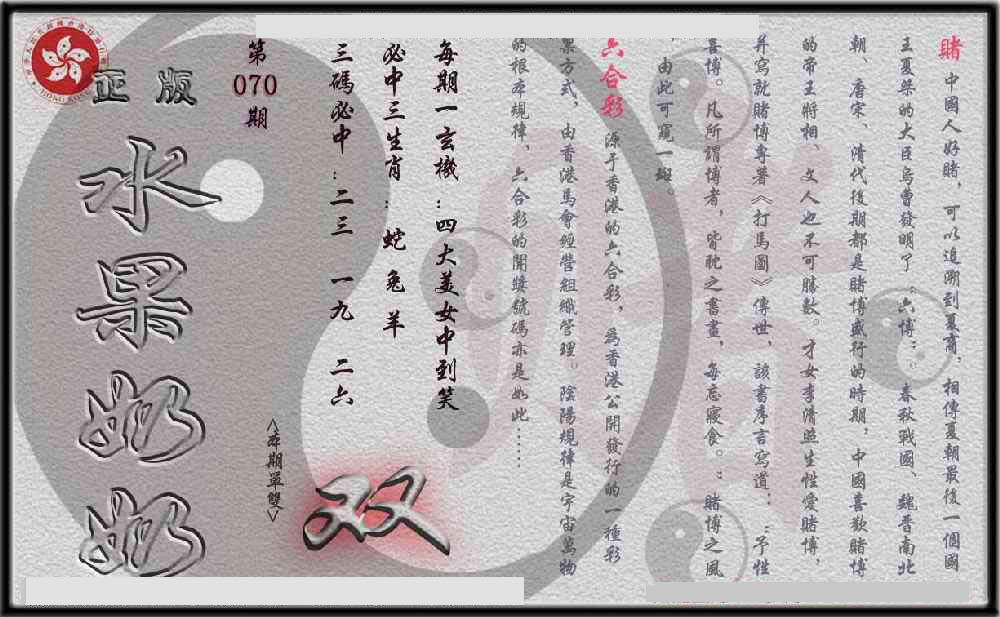 賭 中國人好賭，可以追溯到夏商．相傳夏朝最後一個國
王夏桀的大臣烏曹發明了“六博”．春秋戰國、魏晉南北
朝、唐宋、清代後期都是賭博盛行的時期，中國喜歡賭博
的帝王將相、文人也不可勝數。才女李清照生性愛賭博，
并寫就賭博專著《打馬圖》傳世，該書序言寫道：“予性
喜博。凡所謂博者，皆耽之晝，每忘寢食。”賭博之風
，由此可窺一斑。
六合彩 源于香港的六合彩，為香港公開發行的一種彩
票方式，由香港馬會經營組織管理。陰陽規律是宇宙萬物
的根本規律，六合彩的開獎號碼亦是如此……
每期一玄機：四大美女中到笑
必中三生肖：蛇兔羊
三碼必中：二三 一九 二六
第070期
<本期單雙>
双
正版
水果奶奶